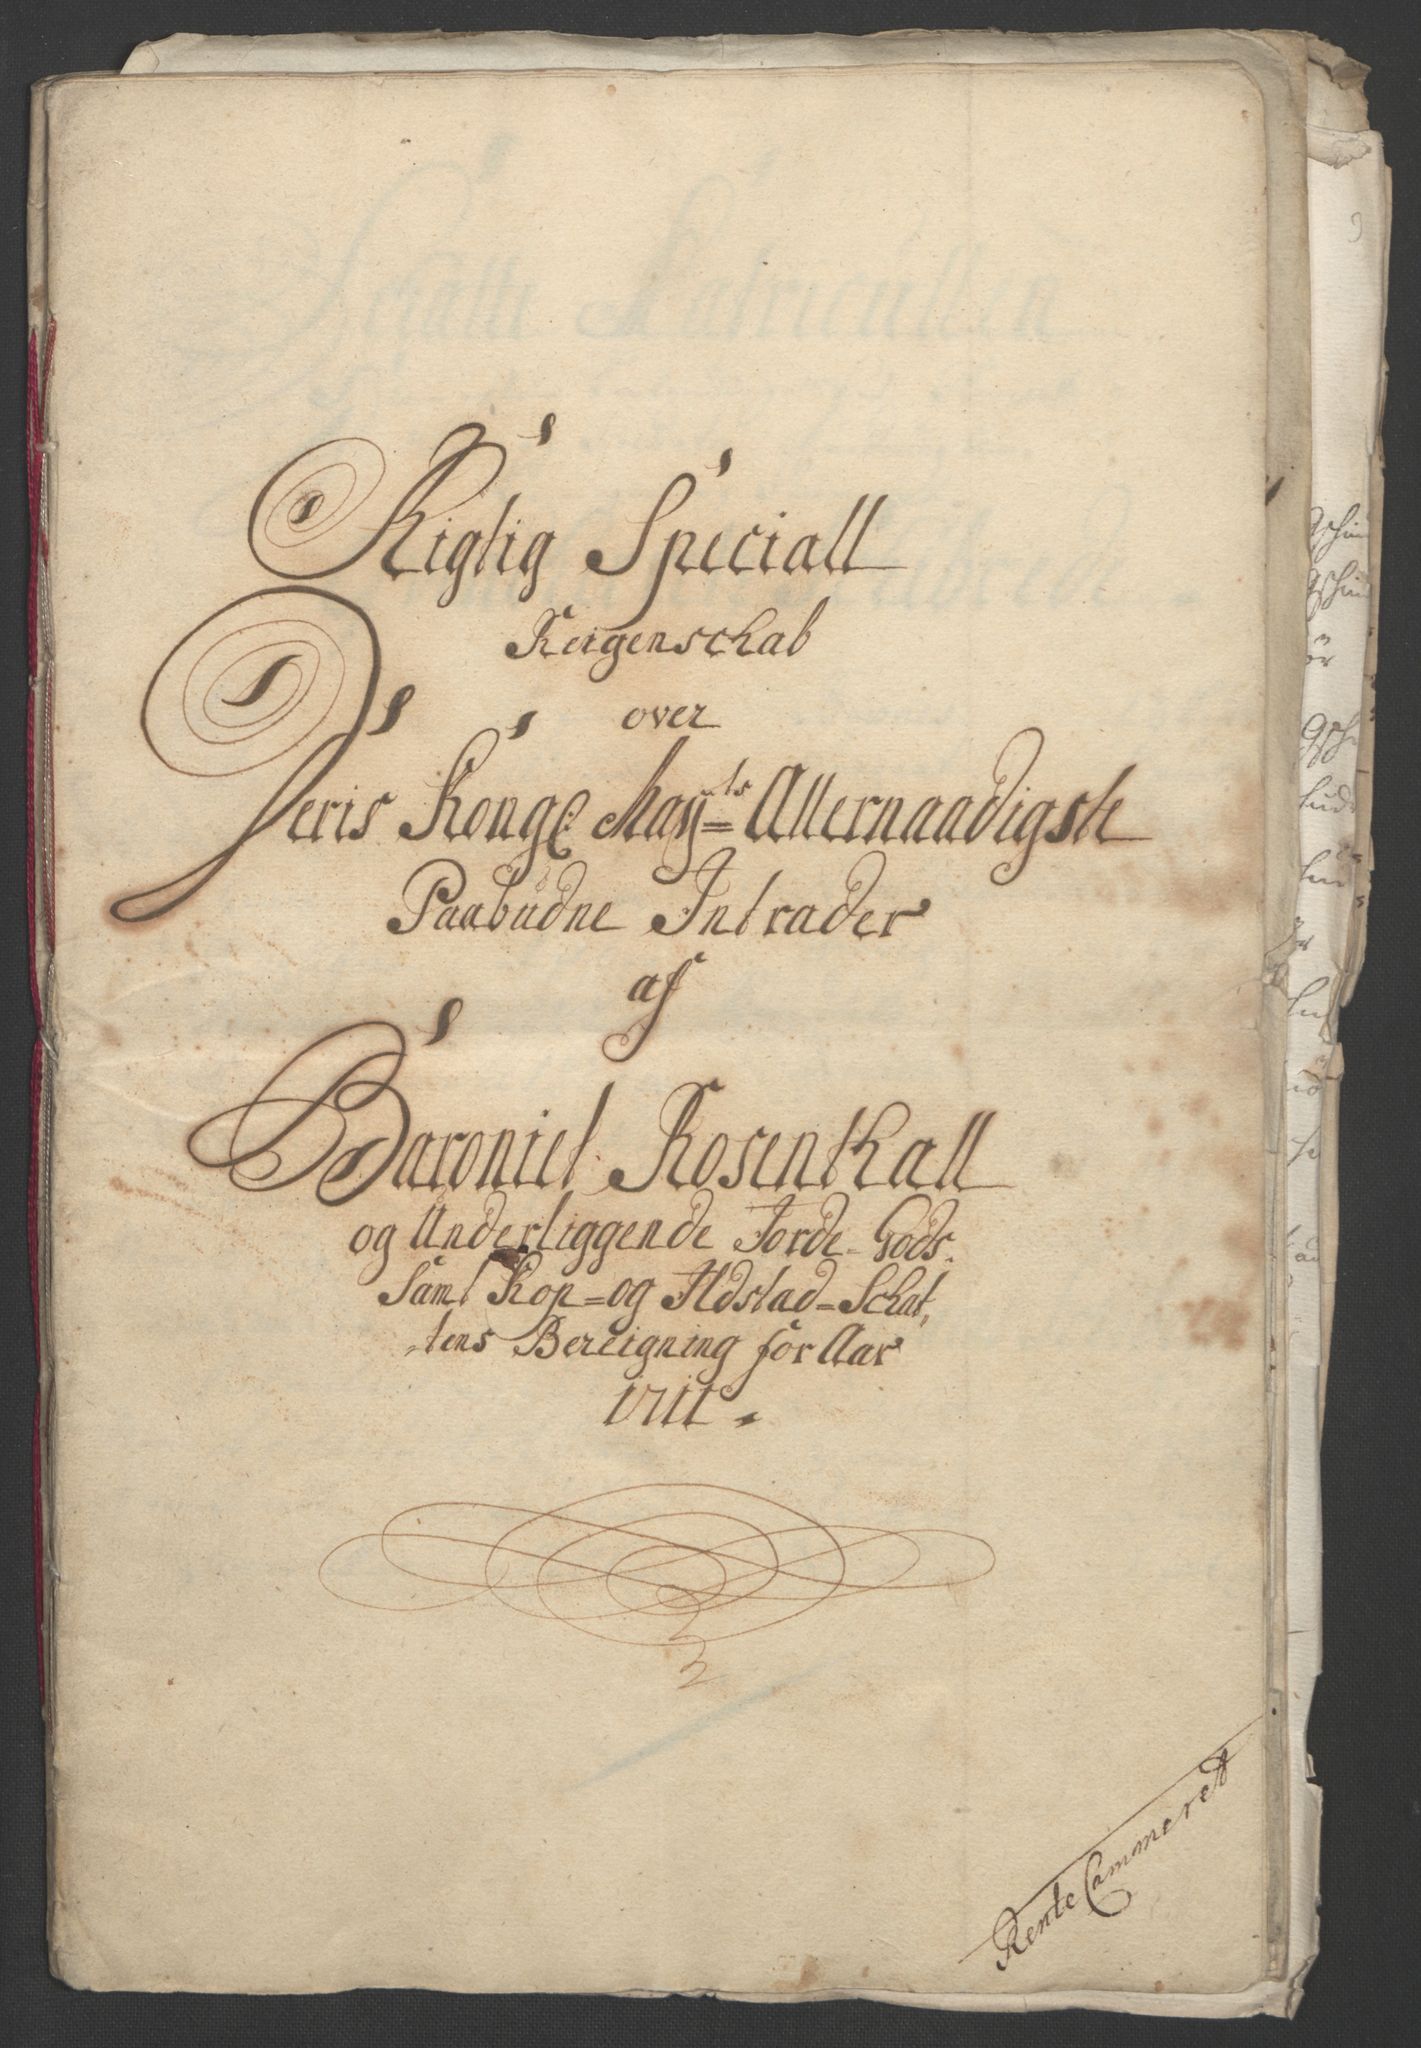 Rigtig Speciall
Reigenschab
over
Deris Kongl Mayts Allernaadigste
Paabudne Intrader
af
Baroniet Rosenthall
og Underliggende Jorde-Gods
Samt Kop=og Ildstad=Schat,
tens Bereigning for Aar
1711.
Rente Cammeret